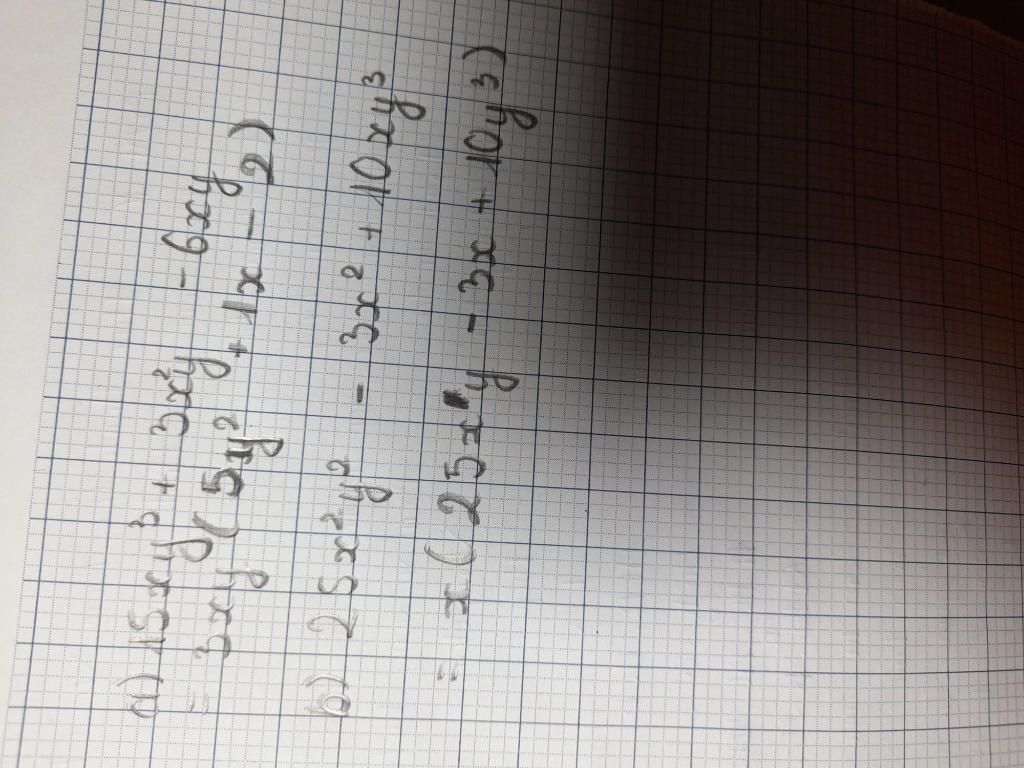 a) 15xy³ + 3x²y - 6xy
= 3xy(5y² + 1x - 2)
b) 25x²y² - 3x² + 10xy³
= x(25xy - 3x + 10y³)